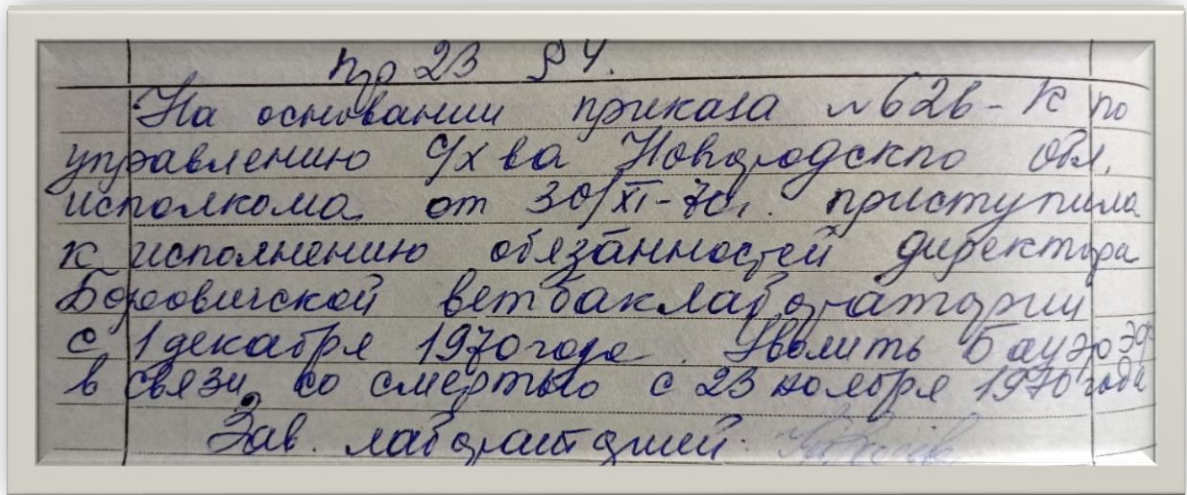 пр 23 § 4.
На основании приказа №626-К по
управлению с/х ва Новгородского обл.
исполкома от 30/XI-70г. приступила
к исполнению обязанностей директора
Боровичской ветбаклаборатории
с 1 декабря 1970 года. Уволить Бауэр Эф
в связи со смертью с 23 ноября 1970 года
Зав. лабораторией: